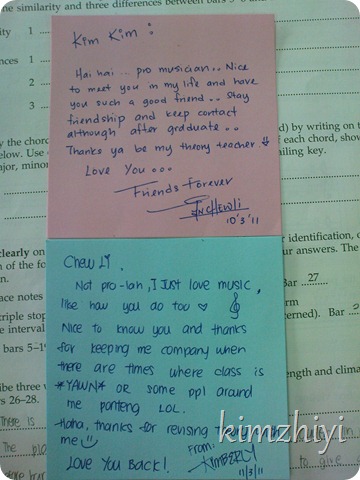 he similarity and three differences between bars 5-8
ity 1
nces 1
2
3
Kim Kim :
Hai hai ... pro musician .. Nice
to meet you in my life and have
you such a good friend .. Stay
friendship and keep contact
although after graduate ..
Thanks ya be my theory teacher
Love You ...
Friends Forever
10'3'11
y the chor
d) by writing on t
elow. Use
f each chord, show
ajor, minor
ailing key.
Chew Li,
Not pro-lah, I Just love music,
like how you do too ♡
Nice to know you and thanks
for keeping me company when
there are times where class is
*YAWN* or some ppl around
me ponteng LOL.
Haha, thanks for revising
me
LOVE YOU BACK!
From:
KIMBERLY
11/3/11
clearly on
r identification,
n of the fo
ur answers. The
Bar 27
ace notes
triple stop
cerned). Bar
e interval
bars 5-19
ribe three
length and clima
rs 26-28.
There is
The
to give
kimzhiyi